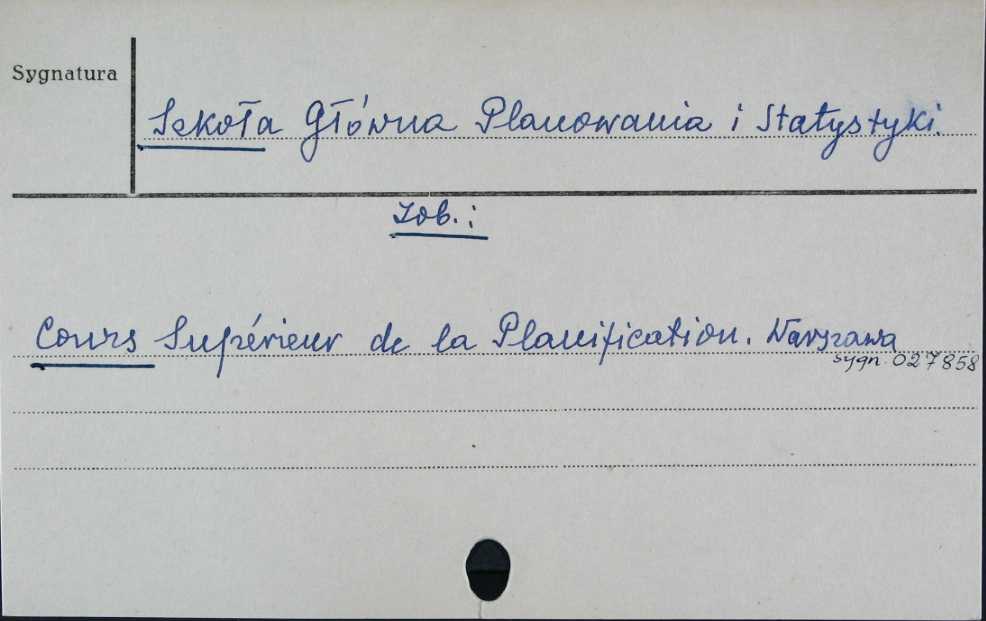 Sygnatura
Szkoła Główna Planowania i Statystyki.
Zob.:
Cours Supérieur de la Planification. Warszawa
sygn. 027858